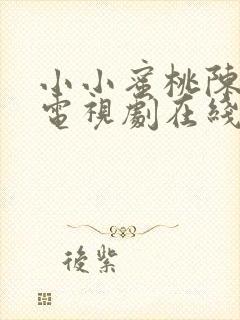 小小蜜桃陳
電視劇在綫
後紫